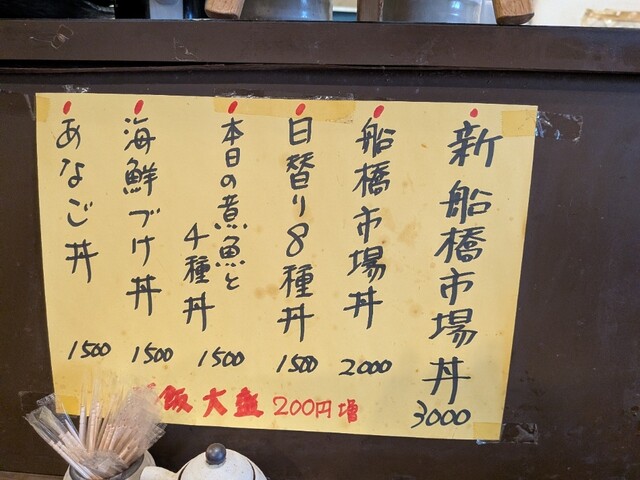 新船橋市場丼
3000
船橋市場丼
2000
日替り8種丼
1500
本日の煮魚と
4種丼
1500
海鮮づけ丼
1500
あなご丼
1500
飯大盛 200円増